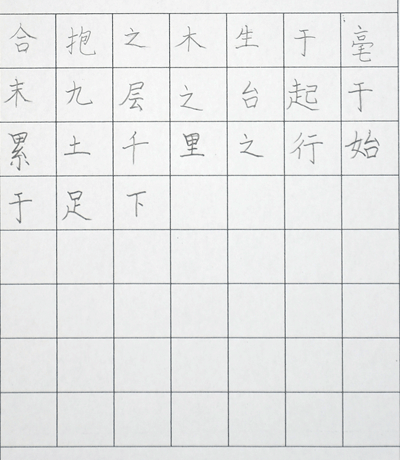 合抱之木生于毫
末九层之台起于
累土千里之行始
于足下